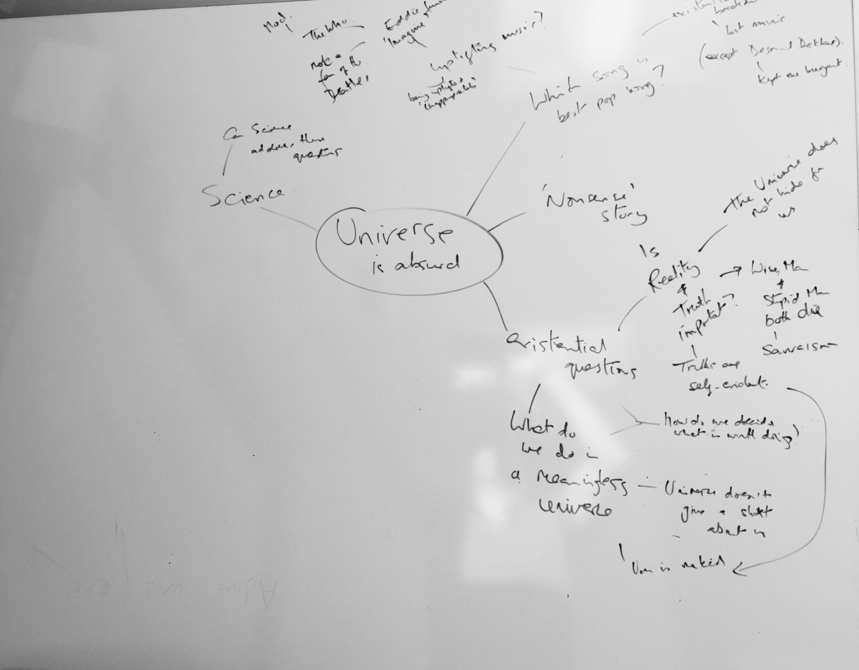 Mod.
The Who
not a
fan of the
Beatles
Eddie
'Imagine'
uplifting music?
being uplifted
Which song is
best pop song?
but music
(except Desmond Dekker).
kept me buoyant.
Can Science
address these
questions
Science
Universe
is absurd
'Nonsense'
story
existential
questions
Is
Reality
&
Truth
important?
The Universe does
not hide from
us
Wise Man
&
Stupid Man
both die
Truths are
self-evident.
What do
we do in
a meaningless
universe
How do we decide
what is worth doing?
Universe doesn't
give a shit
about us
Uni is naked
Adam was ere